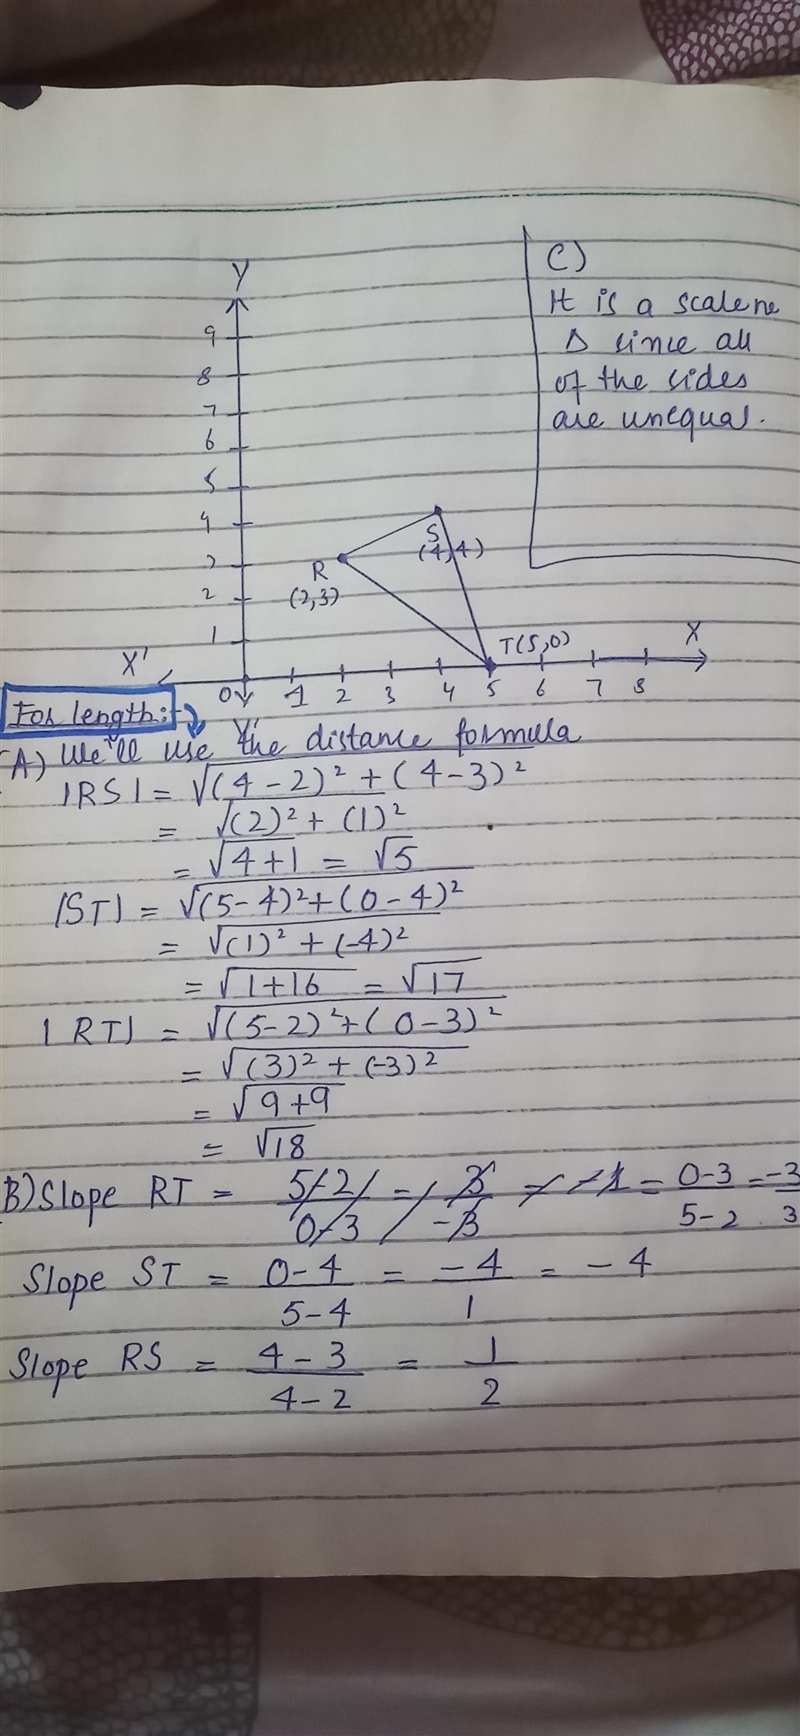 Y
9
8
7
6
5
4
3
2
1
S
(4,4)
R
(2,3)
T(5,0)
X
X'
0 1 2 3 4 5 6 7 8
Y'
C)
It is a scalene
Δ since all
of the sides
are unequal.
For length:-
(A) We'll use the distance formula
|RS| = √(4-2)² + (4-3)²
= √(2)² + (1)²
= √4+1 = √5
|ST| = √(5-4)²+(0-4)²
= √(1)² + (-4)²
= √1+16 = √17
|RT| = √(5-2)²+(0-3)²
= √(3)² + (-3)²
= √9+9
= √18
B) Slope RT = 5-2/0-3 = 3/-3 = -1 = 0-3/5-2 = -3/3
Slope ST = 0-4/5-4 = -4/1 = -4
Slope RS = 4-3/4-2 = 1/2